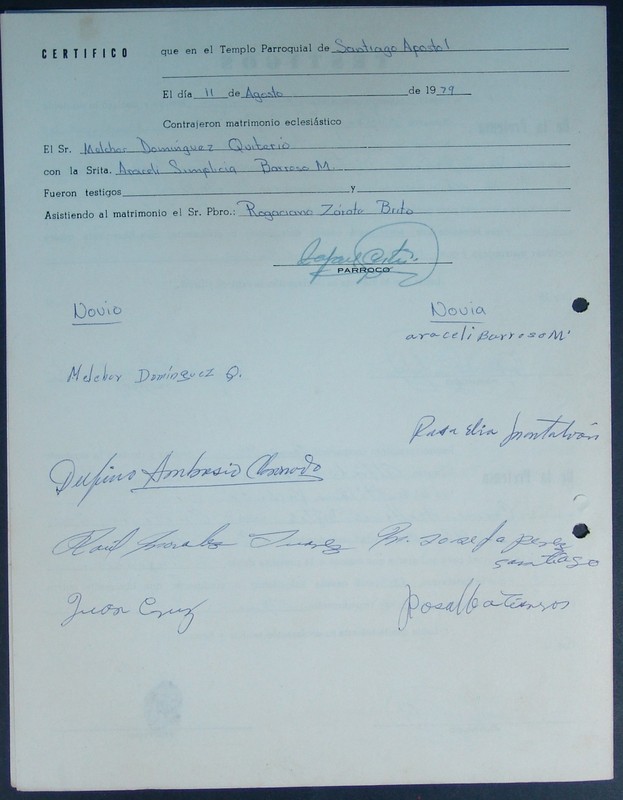 CERTIFICO que en el Templo Parroquial de Santiago Apostol
El día 11 de Agosto de 1979
Contrajeron matrimonio eclesiástico
El Sr. Melchor Domínguez Quiterio
con la Srita. Araceli Simplicia Barroso M.
Fueron testigos y
Asistiendo al matrimonio el Sr. Pbro.: Rogaciano Zárate Brito
PARROCO
Novio Novia
araceli Barroso M
Melchor Domínguez Q.
Rosa Elia Montalván
Delfino Ambrosio
Raúl Morales Juarez Ma. Josefa perez
santiago
Juan Cruz